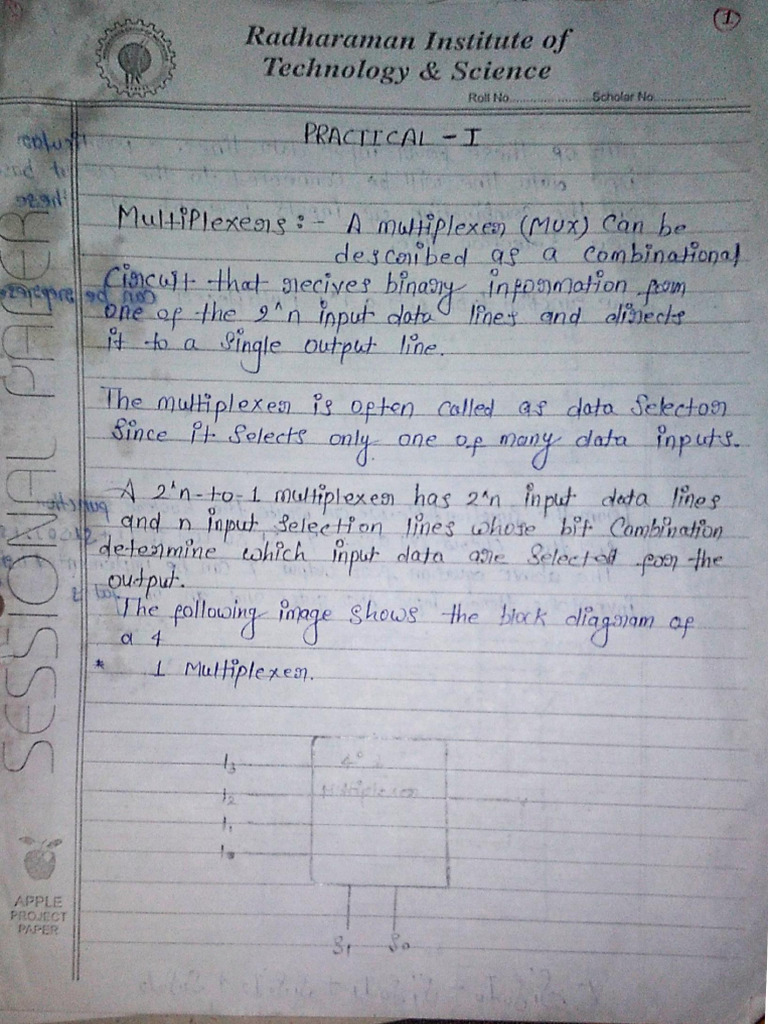 1
Radharaman Institute of
Technology & Science
Roll No.................... Scholar No...................
PRACTICAL - I
Multiplexers :- A multiplexer (MUX) can be
described as a combinational
Circuit that recives binary information from
one of the 2^n input data lines and directs
it to a single output line.
The multiplexer is often called as data Selector
Since it Selects only one of many data inputs.
A 2^n-to-1 multiplexer has 2^n input data lines
and n input selection lines whose bit Combination
determine which input data are Selected for the
output.
The following image shows the block diagram of
a 4
* 1 Multiplexer.
I3
4:1
I2
Multiplexer
I1
I0
S1 S0
SESSIONAL PAPER
APPLE
PROJECT
PAPER